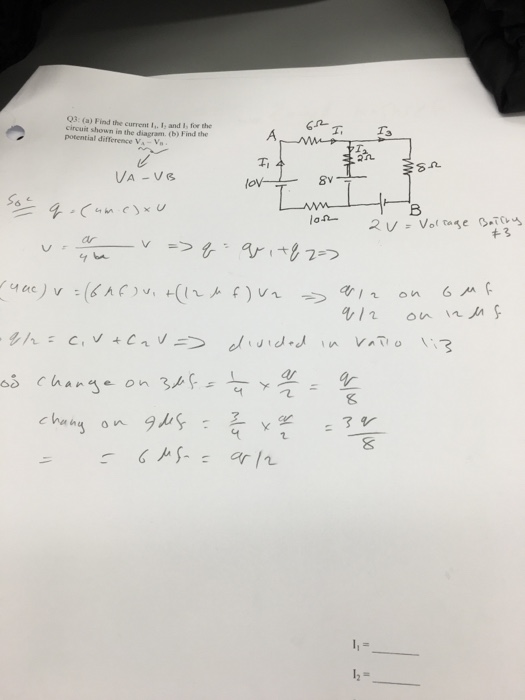 Q3: (a) Find the current I₁, I₂ and I₃ for the
circuit shown in the diagram. (b) Find the
potential difference V_A - V_B.
VA - VB
A
6Ω
I₁
I₃
I₂
2Ω
8Ω
I₁
10V
8V
10Ω
B
2V = Voltage Battery
#3
q =
v =
v => q = q₁ + q₂ =>
v = (6 μf) v₁ + (12 μf) v₂ => q/2 on 6 μf
q/2 on 12 μf
q/2 = C₁V + C₂V => divided in ratio 1:3
change on 3μf = 1/4 × q/2 = q/8
chang on 9μf = 3/4 × q/2 = 3q/8
= = 6 μf = q/2
I₁ =
I₂ =